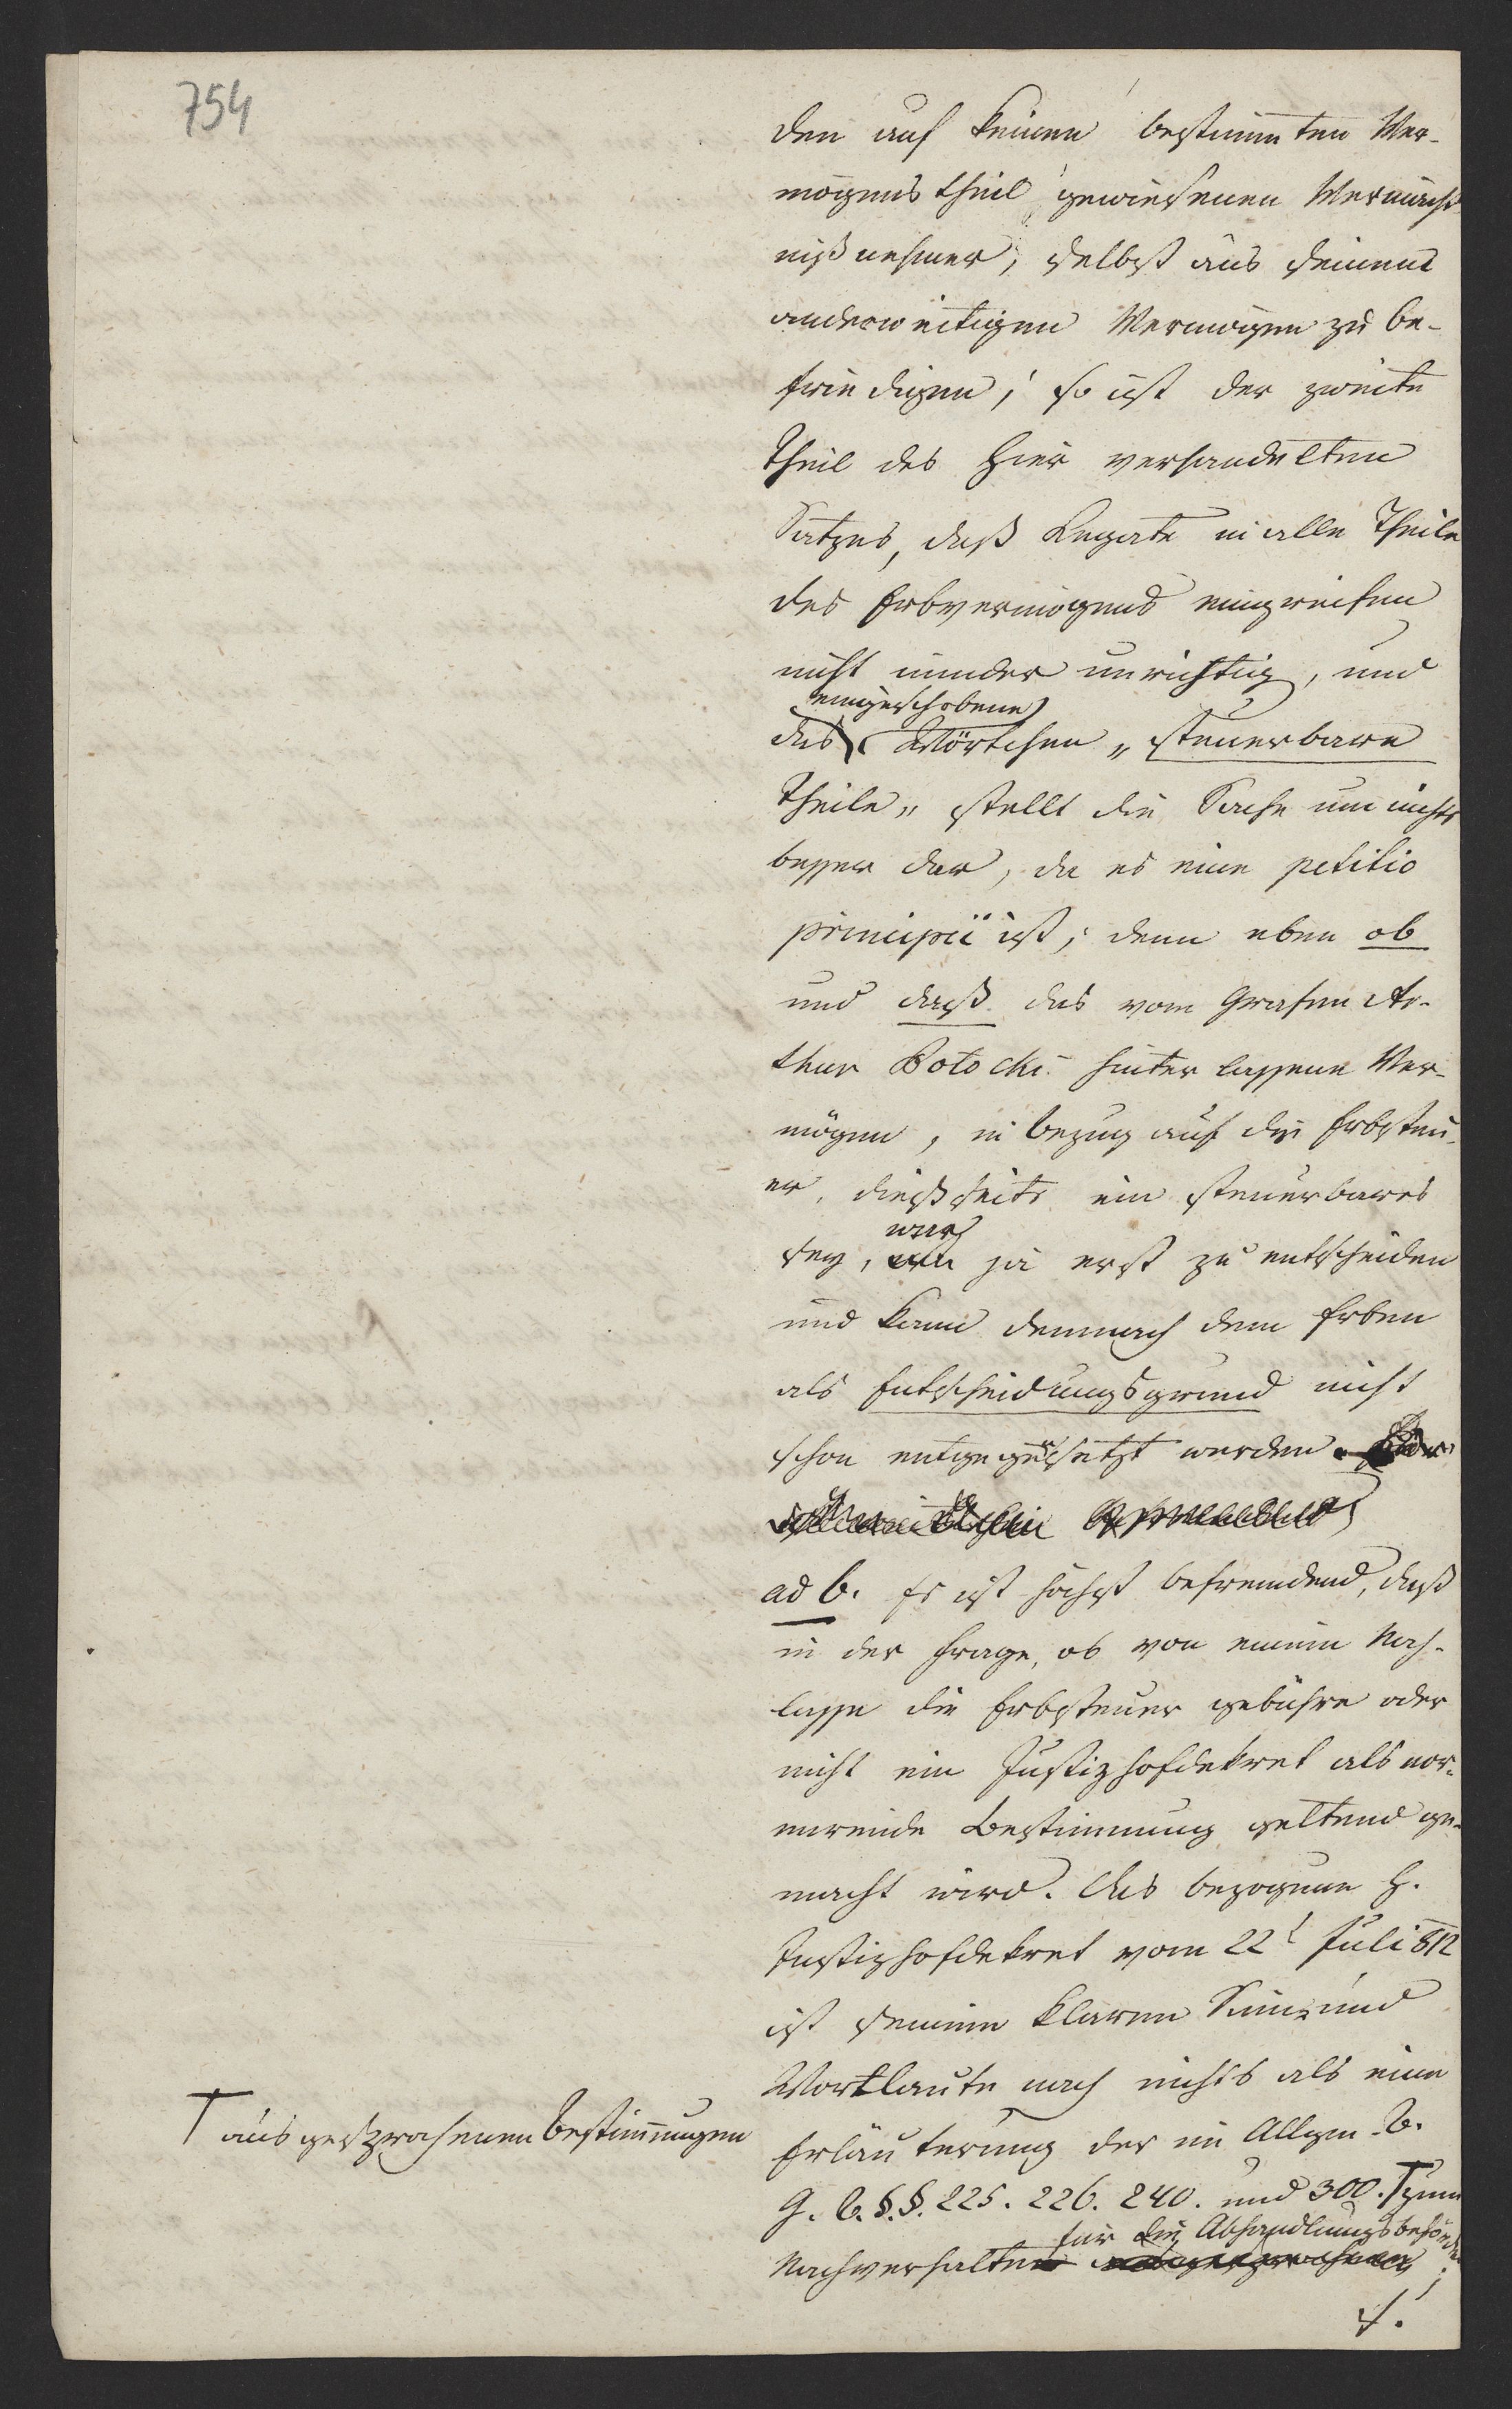 754
den auf keinen bestimmten Ver-
mögenstheil gewiesenen Vermächt-
nißnehmer, selbst aus seinem
anderweitigen Vermögen zu be-
friedigen; so ist der zweite
Theil des hier verhandelten
Satzes, daß Legate in alle Theile
des Erbvermögens eingreifen
nicht minder unrichtig, und
eingeschobene
das Wörtchen „steuerbare
Theile„ stellt die Sache um nichts
besser dar, da es eine petitio
principii ist; denn eben ob
und daß das vom Grafen Ar-
thur Potocki hinterlassene Ver-
mögen, in bezug auf die Erbsteu-
er, dießseits ein steuerbares
sey, war ja erst zu entscheiden
und kann demnach dem Erben
als Entscheidungsgrund nicht
schon entgegengesetzt werden.
ad b. Es ist höchst befremdend, daß
in der Frage, ob von einem Nach-
lasse die Erbsteuer gebühre oder
nicht ein Justizhofdekret als nor-
mirende Bestimmung geltend ge-
macht wird. Das bezogene h.
Justizhofdekret vom 22t Juli 812
ist seinem klaren Sinne und
Wortlaute nach nichts als eine
Erläuterung der im Allgem. B.
G. B. §.§. 225. 226. 240. und 300. T zum
T ausgesprochenen Bestimmungen
für die Abhandlungsbehörden
Nachverhalten ;